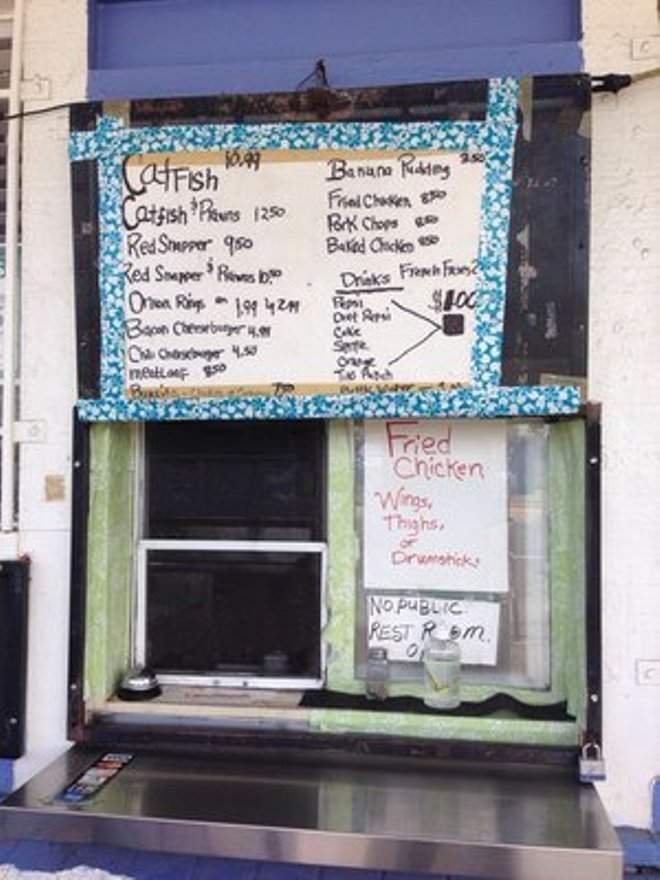 CatFish 10.99
Catfish $ Prawns 12.50
Red Snapper 9.50
Red Snapper $ Prawns 10.50
Onion Rings 1.99 & 2.99
Bacon Cheeseburger 4.99
Chili Cheeseburger 4.50
meatloaf 8.50
7.50
Banana Pudding 3.50
Fried Chicken 8.50
Pork Chops 8.50
Baked Chicken 8.50
French Fries
Drinks
$1.00
Pepsi
Diet Pepsi
Coke
Sprite
Orange
Tiki Punch
Bottle Water
Fried
Chicken
Wings,
Thighs,
or
Drumsticks
NO PUBLIC
REST ROOM.